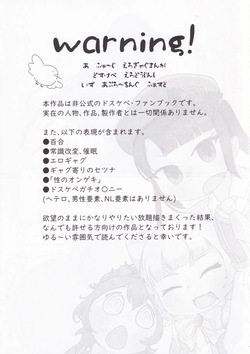 warning!
あ　ふゅ〜じ　えろぎゃくまんが
どすけべ　えろどうじんし
いず　あぷろ〜ちんぐ　ふぁすと
本作品は非公式のドスケベ・ファンブックです。
実在の人物、作品、製作者とは一切関係ありません。
また、以下の表現が含まれます。
●百合
●常識改変、催眠
●エロギャグ
●ギャグ寄りのセツナ
●「性のオンゲキ」
●ドスケベガチオ〇ニー
(ヘテロ、男性要素、NL要素はありません)
欲望のままにかなりやりたい放題描きまくった結果、
なんでも許せる方向けの作品となっております！
ゆる〜い雰囲気で読んでくださると幸いです。